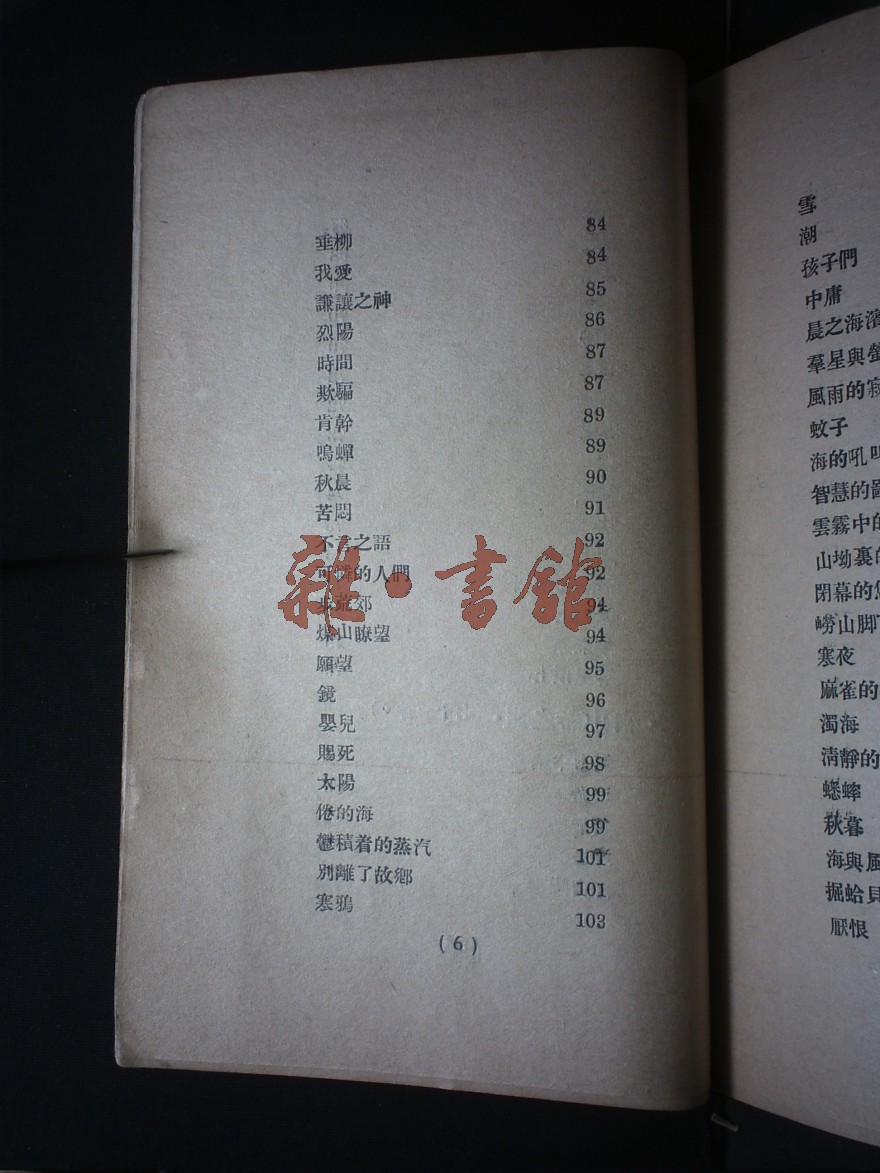 垂柳 84
我愛 84
謙讓之神 85
烈陽 86
時間 87
欺騙 87
肯幹 89
鳴蟬 89
秋晨 90
苦悶 91
不言之語 92
可憐的人們 92
步荒郊 94
煤山瞭望 94
願望 95
鏡 96
嬰兒 97
賜死 98
太陽 99
倦的海 99
鬱積着的蒸汽 101
別離了故鄉 101
寒鴉 103
(6)
雜·書舘
雪
潮
孩子們
中庸
晨之海濱
羣星與螢
風雨的
蚊子
海的吼
智慧的
雲霧中的
山坳裏的
閉幕的
嶗山脚下
寒夜
麻雀的
濁海
淸靜的
蟋蟀
秋暮
海與風
掘蛤貝
厭恨